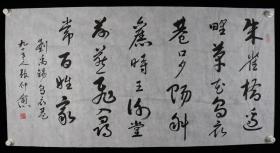 朱雀橋邊
野草花烏衣
巷口夕陽斜
舊時王謝堂
前燕飛入尋
常百姓家
劉禹錫烏衣巷
張仲